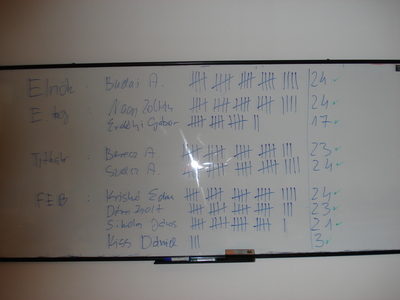 Elnök : Budai A. 24
E. tag : Nagy Zoltán 24
Erdélyi Gábor 17
Titkár : Bencz A. 23
Szűcs A. 24
FEB : Kriskó Edina 24
Dobó Zsolt 23
Simon János 21
Kiss Dániel 3